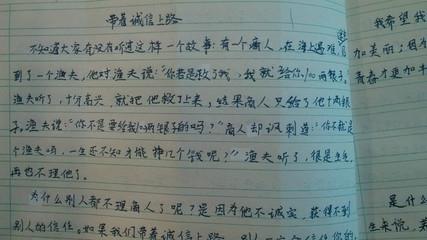 带着诚信上路
不知道大家有没有听过这样一个故事:有一个商人,在海上遇难,遇
到了一个渔夫,他对渔夫说:"你若是救了我,我就给你100两银子。"
渔夫听了,十分高兴,就把他救了上来,结果商人只给了他十两银
子。渔夫说:"你不是要给我100两银子的吗?"商人却讽刺道:"你不就是
个渔夫吗,一生还不知才能挣几个钱呢?"渔夫听了,很是生气,
再也不理他了。
为什么别人都不理商人了呢?是因为他不诚实,获得不到
别人的信任。如果我们带着诚信上路,别人
我希望我
加美丽;因为
青春才更加丰
是什么
生来说,